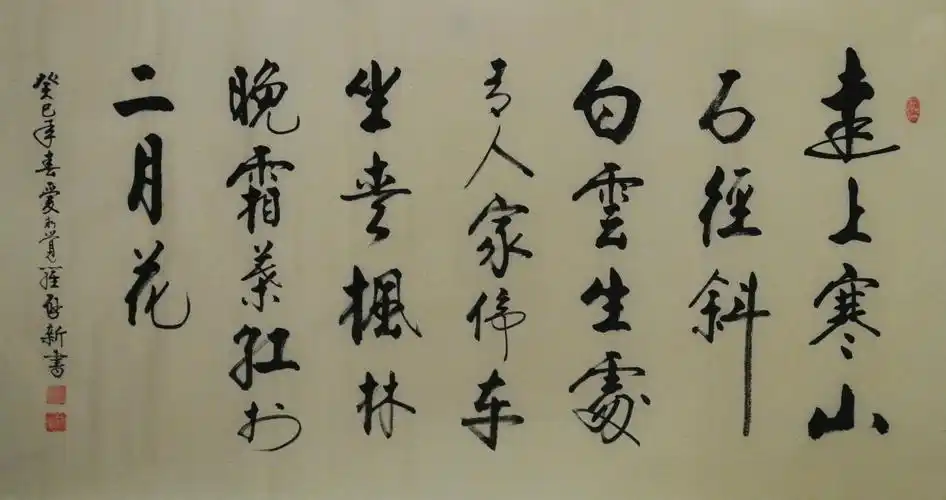 遠上寒山
石徑斜
白雲生處
有人家停车
坐愛楓林
晚霜葉紅於
二月花
癸巳年春愛新覺羅啟新書